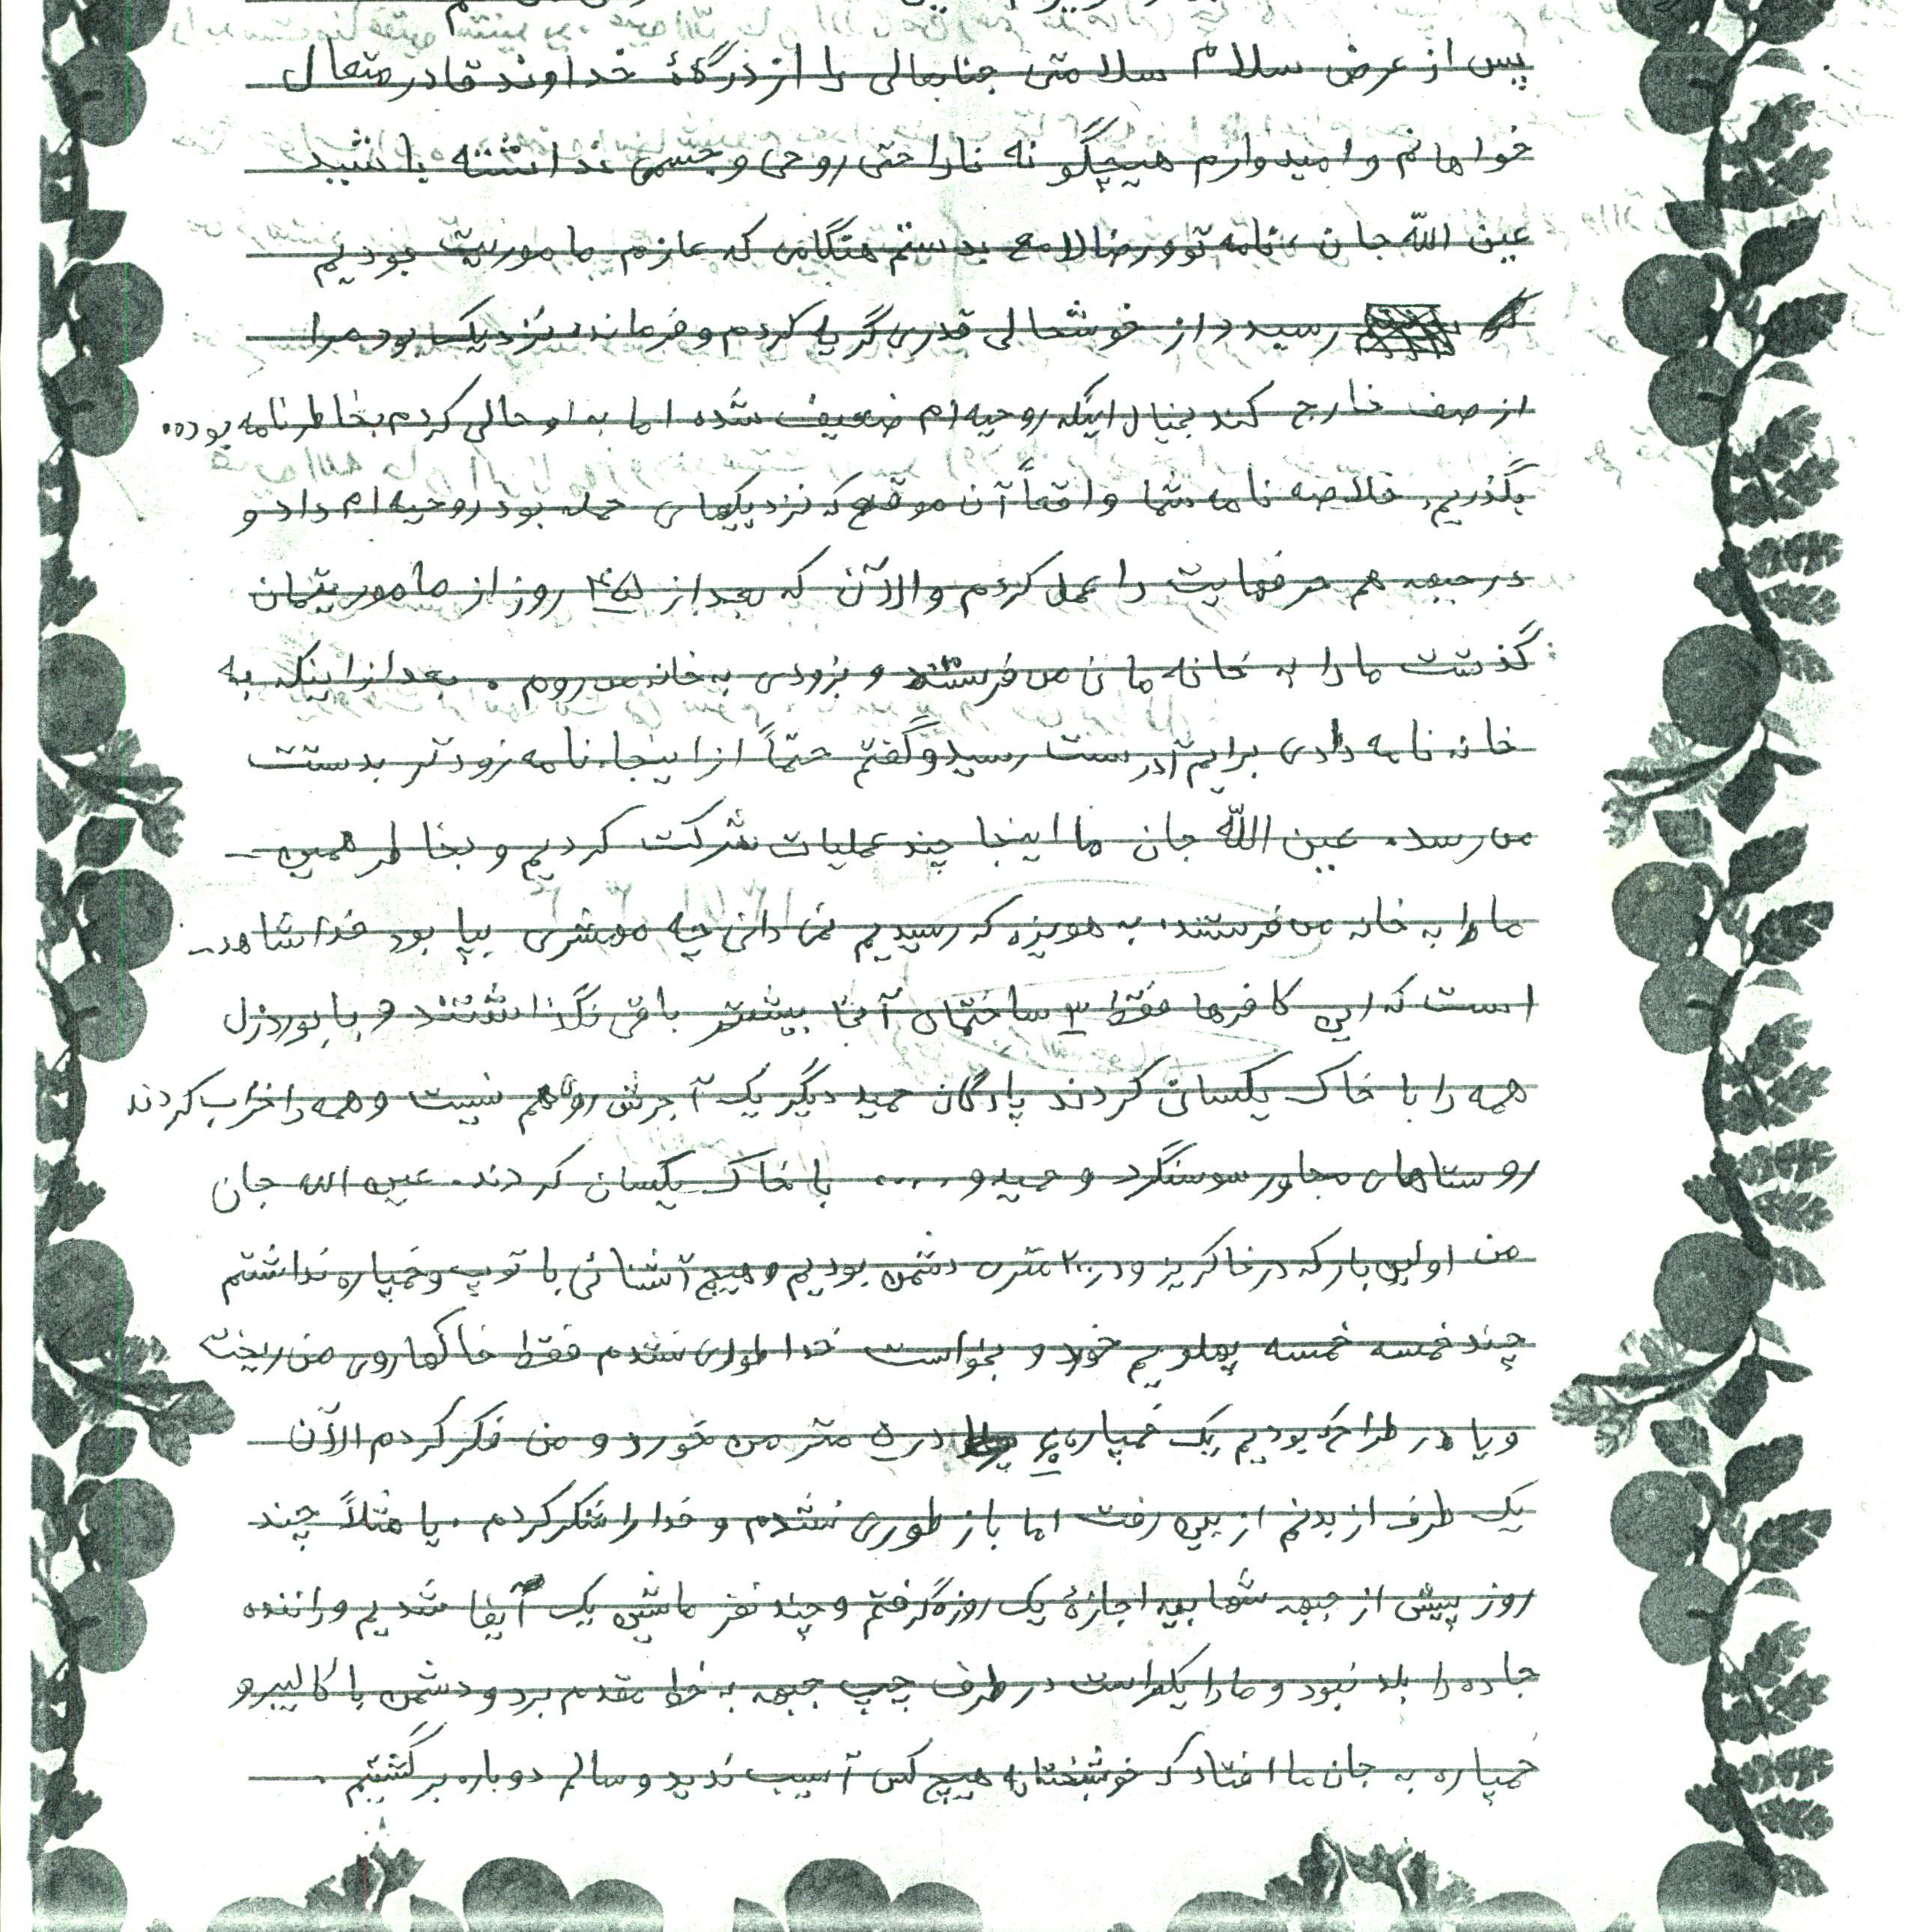 پس از عرض سلام سلامتی جنابعالی را از درگاهٔ خداوند قادر متعال
خواهانم و امیدوارم هیچگونه ناراحتی روحی و جسمی نداشته باشید
عین اللّه جان نامه تو و رضا لامع بدستم هنگامی که عازم ماموریت بودیم
رسید و از خوشحالی قدری گریه کردم و فرمانده نزدیک بود مرا
از صف خارج کند بخیال اینکه روحیه ام ضعیف شده اما به او حالی کردم بخاطر نامه بوده.
بگذریم، خلاصه نامه شما واقعاً آن موقع که نزدیکیهای حمله بود روحیه ام داد و
در جبهه هم حرفهایت را عمل کردم و الآن که بعد از ۴۵ روز از ماموریتمان
گذشت ما را به خانه مان می فرستند و بزودی به خانه می روم. بعد از اینکه به
خانه نامه دادی برایم آدرست رسید و گفتم حتماً از اینجا نامه زودتر بدستت
می رسد. عین اللّه جان ما اینجا چند عملیات شرکت کردیم و بخاطر همین -
ما را به خانه می فرستند، به هویزه که رسیدیم نمی دانی چه محشری بپا بود خدا شاهد -
است که این کافرها فقط ۳ ساختمان آنجا بیشتر باقی نگذاشتند و با بوردزل
همه را با خاک یکسان کردند پادگان حمید دیگر یک آجرش روهم نیست و همه را خراب کردند
روستاهای مجاور سوسنگرد و حمید و .... با خاک یکسان کردند. عین الله جان
من اولین بار که در خاکریز و در ۲۰۰ متری دشمن بودیم و هیچ آشنائی با توپ و خمپاره نداشتم
چند خمسه خمسه پهلویم خورد و بخواست خدا طوری نشدم فقط خاکها روی من ریخت
و یا در طراح که بودیم یک خمپاره ۶۰ در ۵ متر من خورد و من فکر کردم الآن
یک طرف از بدنم از بین رفت اما باز طوری نشدم و خدا را شکر کردم. یا مثلاً چند
روز پیش از جبهه شهابیه اجازهٔ یک روزه گرفتم و چند نفر ماشین یک آیفا شدیم و راننده
جاده را بلد نبود و ما را یکراست در طرف چپ جبهه به خط مقدم برد و دشمن با کالیبر و
خمپاره به جان ما افتاد که خوشبختانه هیچ کس آسیب ندید و سالم دوباره برگشتیم.